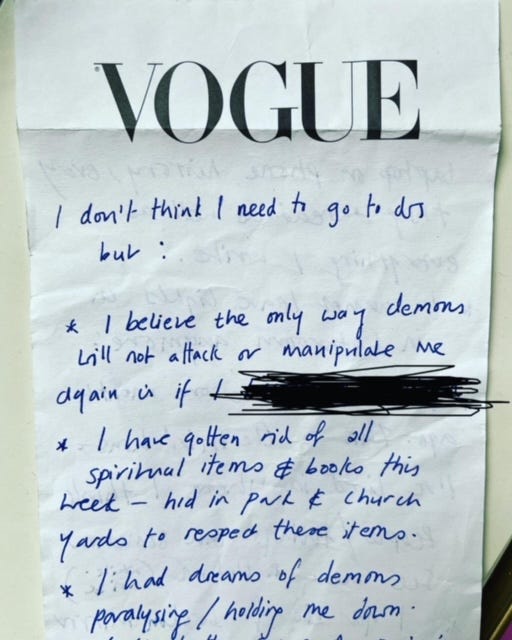 VOGUE
I don't think I need to go to drs
but :
* I believe the only way demons
will not attack or manipulate me
again is if I
* I have gotten rid of all
spiritual items & books this
week – hid in park & church
yards to respect these items.
* I had dreams of demons
paralysing / holding me down.